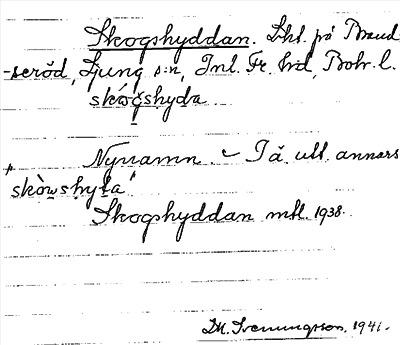 Skogshyddan. Lht. på Brand-
-seröd, Ljung s:n, Inl. Fr. hd, Bohr. l.
skóg̣shyda
Nynamn. – I ä. utt. annars
"skòwshyta"
Skogshyddan mtl. 1938.
M. Svenungsson, 1941.